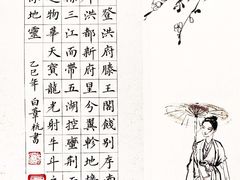 登洪府滕王閣餞別序南
洪都新府星分翼軫地
三江而帶五湖控蠻荊
物華天寶龍光射牛斗
傑地靈
乙巳年
書